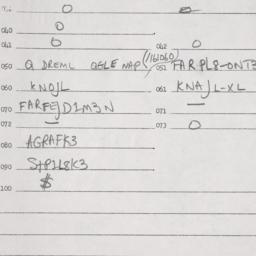 O
040 O
041 O 042 O
050 Q DREML QGLE MAP (/161060) 051 FARPL8-ONT3
060 KNOJL 061 KNAJL-XL
070 FARFEJD1M3N 071 —
072 — 073 O
080 AGRAFK3
090 S+P1L8K3
100 $